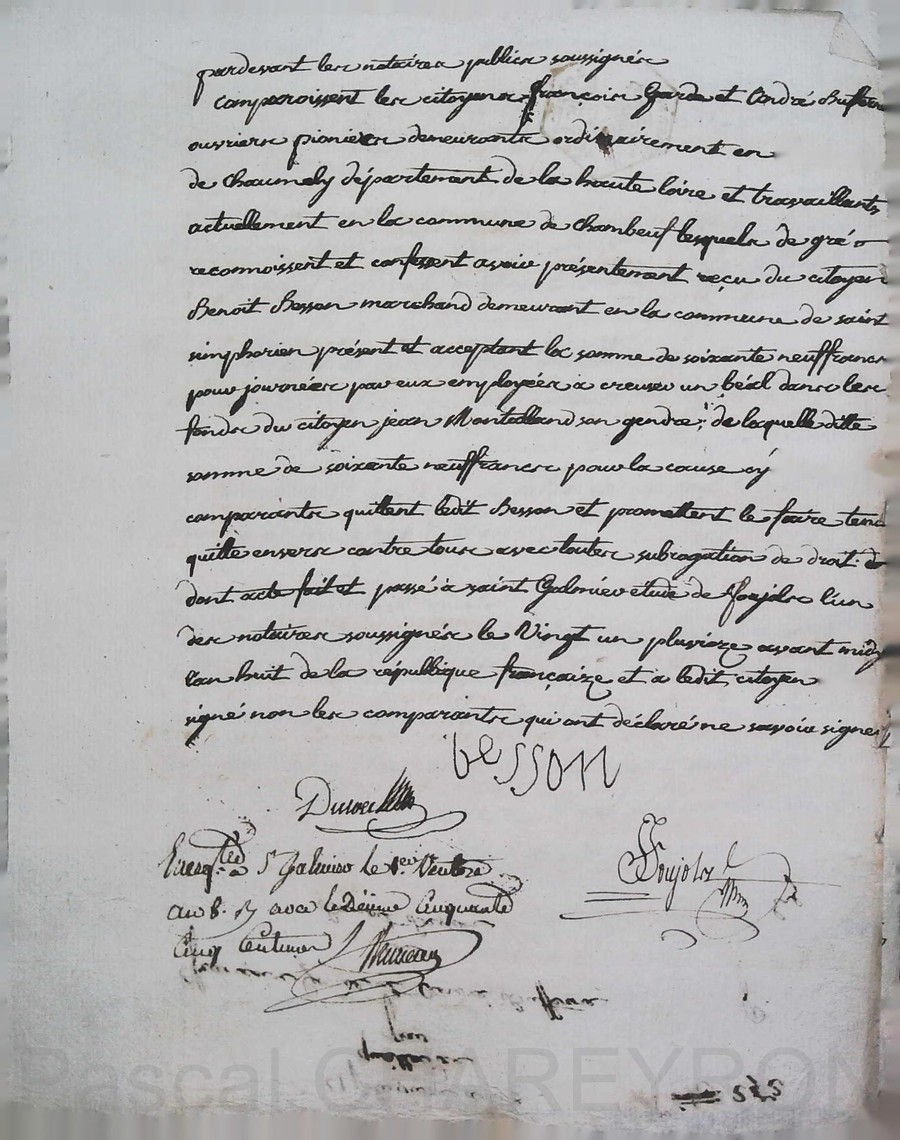 pardevant les notaires publics soussignés
Comparoissent les citoyens françois Garde et André
ouvriers pioniers demeurants ordinairement en
de Chaumely département de la haute loire et travaillants
actuellement en la commune de Chambeuf lesquels de gré
reconnoissent et confessent avoir présentement reçu du citoyen
Benoit Besson marchand demeurant en la commune de saint
simphorien présent et acceptant la somme de soixante neuf francs
pour journées par eux employées à creuser un béal dans les
fonds du citoyen jean Montailland son gendre ; de laquelle ditte
somme de soixante neuf francs pour la cause cy
comparants quittent ledit Besson et promettent le faire tenir
quitte envers contre tous avec toutes subrogation de droit
dont acte fait et passé à saint Galmier etude de foujols l'un
des notaires soussignés le Vingt un pluvioze avant midy
l'an huit de la république françaize et a ledit citoyen
signé non les comparants qui ont déclaré ne savoir signer
besson
Enreg.tré à S.t Galmier le 1.er Ventose
an 8. Decime Cinquante
Cinq Centimes
575
Pascal CHAREYRON